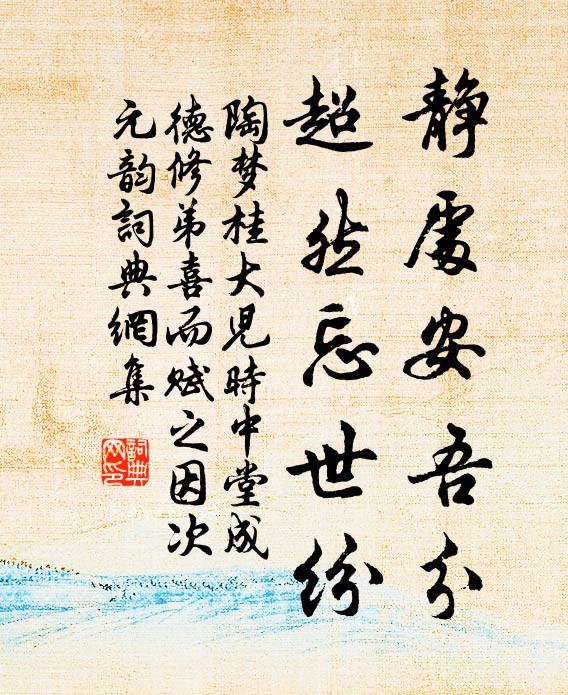 静處安吾分
超然忘世纷
陶梦桂大儿時中堂成
德修弟喜而赋之因次
元韵詞典網集
詞典網印